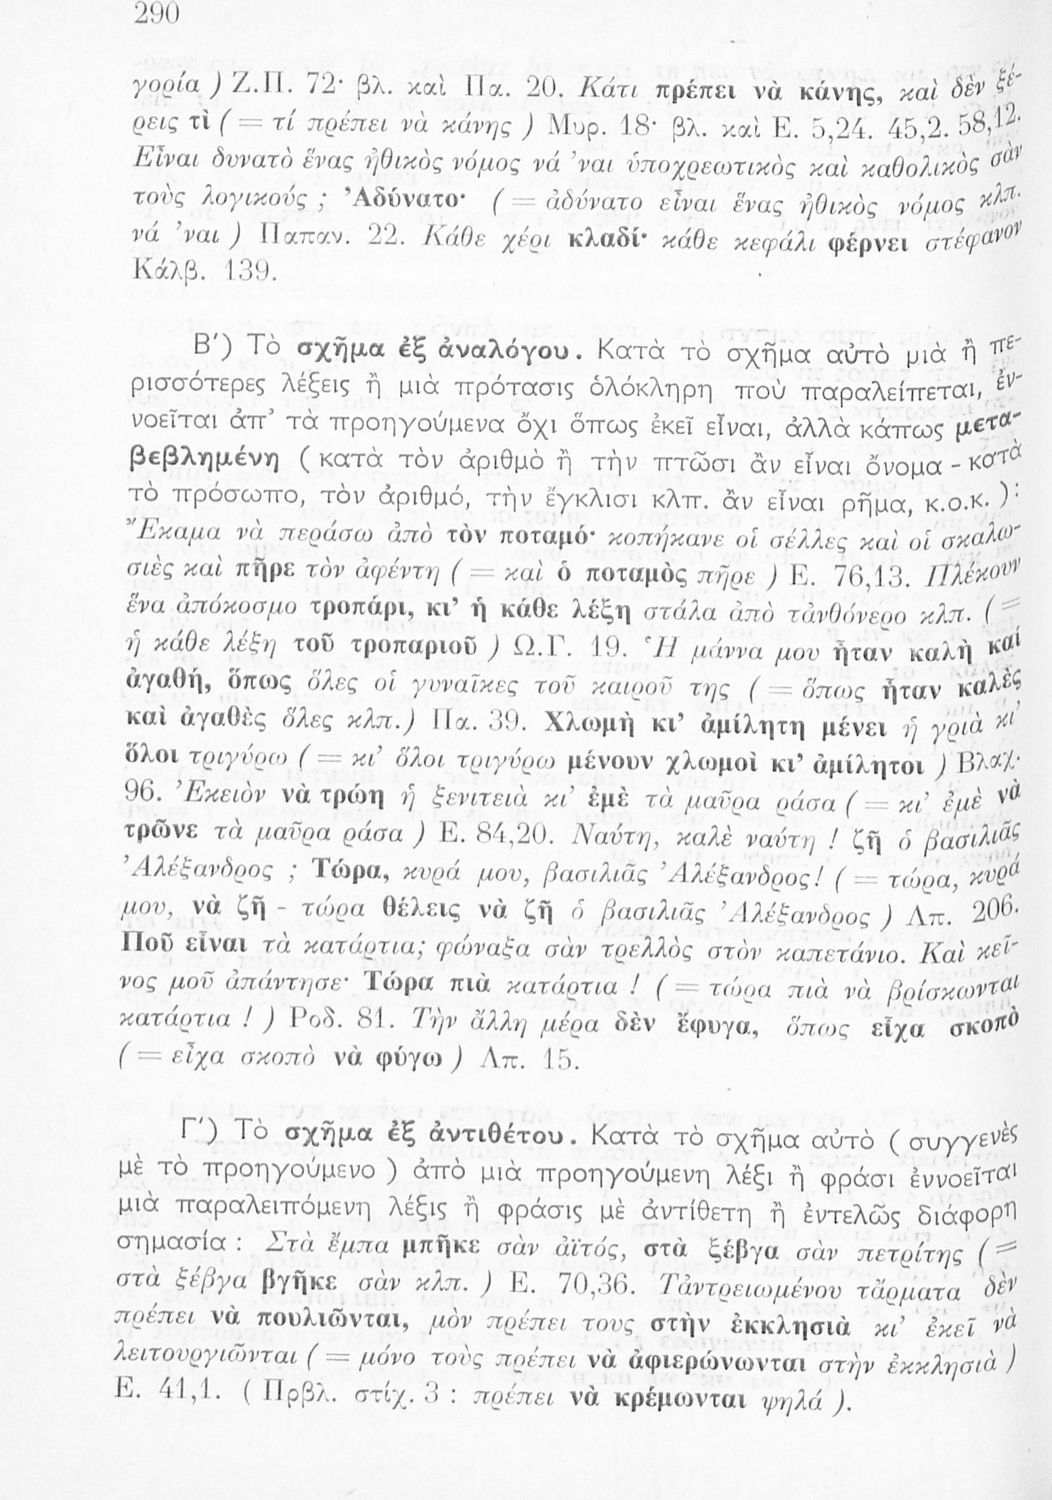 290
γορία ) Ζ.Π. 72· βλ. καὶ Πα. 20. Κάτι πρέπει νὰ κάνῃς, καὶ δὲν ξέ-
ρεις τὶ ( = τί πρέπει νὰ κάνῃς ) Μυρ. 18· βλ. καὶ Ε. 5,24. 45,2. 58,12.
Εἶναι δυνατὸ ἕνας ἠθικὸς νόμος νά 'ναι ὑποχρεωτικὸς καὶ καθολικὸς σὰν
τοὺς λογικούς ; Ἀδύνατο· ( = ἀδύνατο εἶναι ἕνας ἠθικὸς νόμος κλπ.
νά 'ναι ) Παπαν. 22. Κάθε χέρι κλαδί· κάθε κεφάλι φέρνει στέφανον
Κάλβ. 139.
Β') Τὸ σχῆμα ἐξ ἀναλόγου. Κατὰ τὸ σχῆμα αὐτὸ μιὰ ἢ πε-
ρισσότερες λέξεις ἢ μιὰ πρότασις ὁλόκληρη ποὺ παραλείπεται, ἐν-
νοεῖται ἀπ' τὰ προηγούμενα ὄχι ὅπως ἐκεῖ εἶναι, ἀλλὰ κάπως μετα-
βεβλημένη ( κατὰ τὸν ἀριθμὸ ἢ τὴν πτῶσι ἂν εἶναι ὄνομα - κατὰ
τὸ πρόσωπο, τὸν ἀριθμό, τὴν ἔγκλισι κλπ. ἂν εἶναι ρῆμα, κ.ο.κ. ) :
Ἔκαμα νὰ περάσω ἀπὸ τὸν ποταμό· κοπήκανε οἱ σέλλες καὶ οἱ σκαλω-
σιὲς καὶ πῆρε τὸν ἀφέντη ( = καὶ ὁ ποταμὸς πῆρε ) Ε. 76,13. Πλέκουν
ἕνα ἀπόκοσμο τροπάρι, κι' ἡ κάθε λέξη στάλα ἀπὸ τἀνθόνερο κλπ. ( =
ἡ κάθε λέξη τοῦ τροπαριοῦ ) Ω.Γ. 19. Ἡ μάννα μου ἦταν καλὴ καὶ
ἀγαθή, ὅπως ὅλες οἱ γυναῖκες τοῦ καιροῦ της ( = ὅπως ἦταν καλὲς
καὶ ἀγαθὲς ὅλες κλπ.) Πα. 39. Χλωμὴ κι' ἀμίλητη μένει ἡ γριὰ κι'
ὅλοι τριγύρω ( = κι' ὅλοι τριγύρω μένουν χλωμοὶ κι' ἀμίλητοι ) Βλαχ.
96. Ἐκειὸν νὰ τρώῃ ἡ ξενιτειὰ κι' ἐμὲ τὰ μαῦρα ράσα ( = κι' ἐμὲ νὰ
τρῶνε τὰ μαῦρα ράσα ) Ε. 84,20. Ναύτη, καλὲ ναύτη ! ζῇ ὁ βασιλιᾶς
Ἀλέξανδρος ; Τώρα, κυρά μου, βασιλιᾶς Ἀλέξανδρος! ( = τώρα, κυρά
μου, νὰ ζῇ - τώρα θέλεις νὰ ζῇ ὁ βασιλιᾶς Ἀλέξανδρος ) Λπ. 206.
Ποῦ εἶναι τὰ κατάρτια; φώναξα σὰν τρελλὸς στὸν καπετάνιο. Καὶ κεῖ-
νος μοῦ ἀπάντησε· Τώρα πιὰ κατάρτια ! ( = τώρα πιὰ νὰ βρίσκωνται
κατάρτια ! ) Ροδ. 81. Τὴν ἄλλη μέρα δὲν ἔφυγα, ὅπως εἶχα σκοπὸ
( = εἶχα σκοπὸ νὰ φύγω ) Λπ. 15.
Γ') Τὸ σχῆμα ἐξ ἀντιθέτου. Κατὰ τὸ σχῆμα αὐτὸ ( συγγενὲς
μὲ τὸ προηγούμενο ) ἀπὸ μιὰ προηγούμενη λέξι ἢ φράσι ἐννοεῖται
μιὰ παραλειπόμενη λέξις ἢ φράσις μὲ ἀντίθετη ἢ ἐντελῶς διάφορη
σημασία : Στὰ ἔμπα μπῆκε σὰν ἀϊτός, στὰ ξέβγα σὰν πετρίτης ( =
στὰ ξέβγα βγῆκε σὰν κλπ. ) Ε. 70,36. Τἀντρειωμένου τἄρματα δὲν
πρέπει νὰ πουλιῶνται, μὸν πρέπει τους στὴν ἐκκλησιὰ κι' ἐκεῖ νὰ
λειτουργιῶνται ( = μόνο τοὺς πρέπει νὰ ἀφιερώνωνται στὴν ἐκκλησιὰ )
Ε. 41,1. ( Πρβλ. στίχ. 3 : πρέπει νὰ κρέμωνται ψηλά ).